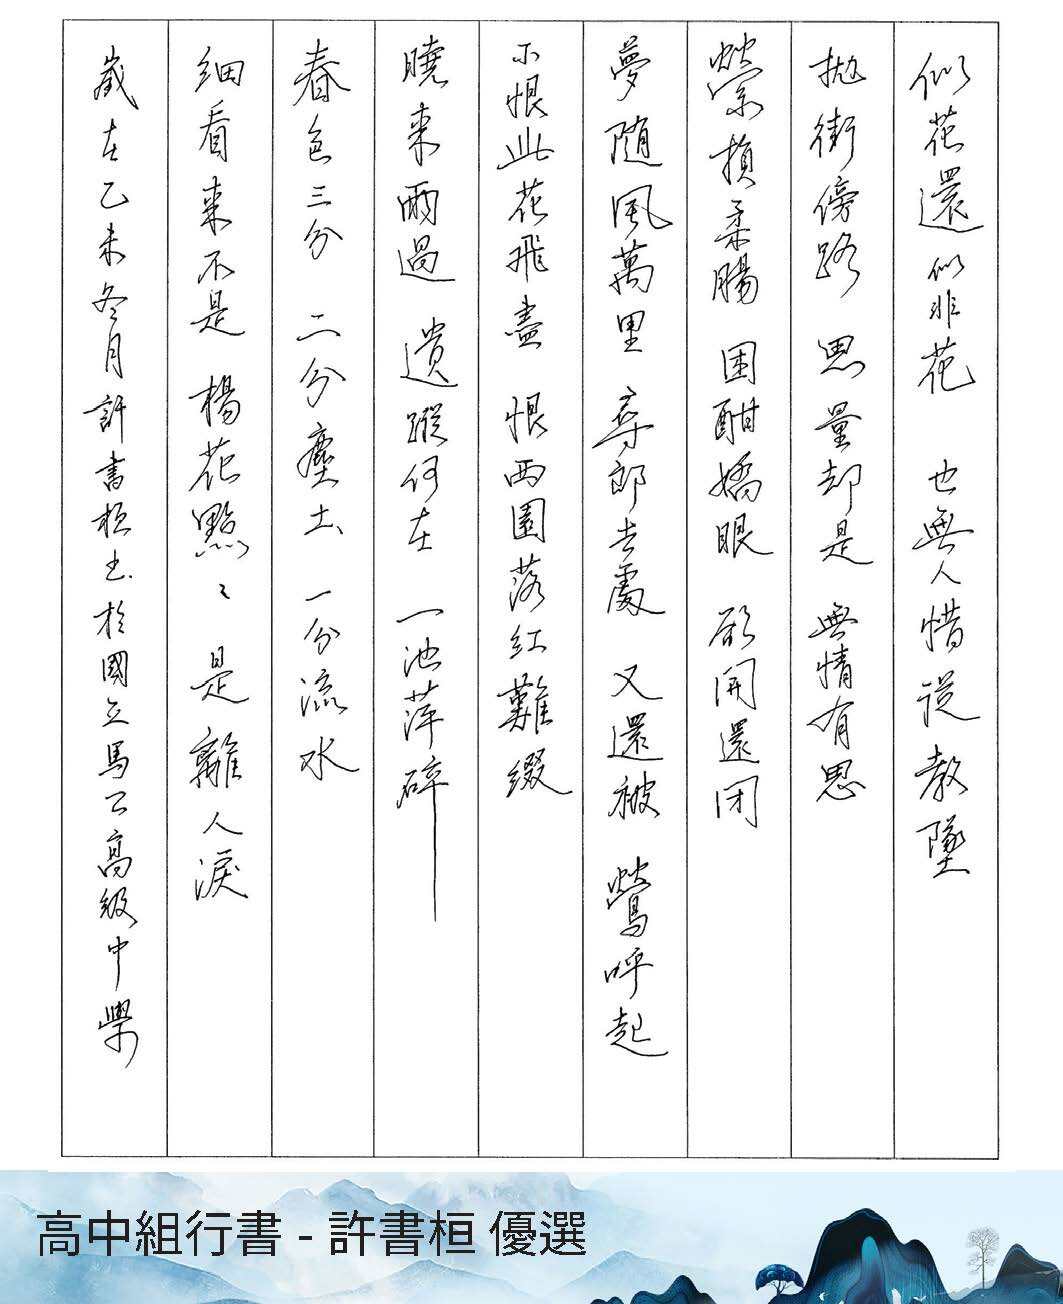 似花還似非花 也無人惜從教墜
拋街傍路 思量却是 無情有思
縈損柔腸 困酣嬌眼 欲開還闭
夢隨風萬里 尋郎去處 又還被 鶯呼起
不恨此花飛盡 恨西園落紅難綴
曉来雨過 遺蹤何在 一池萍碎
春色三分 二分塵土 一分流水
細看来不是 楊花點〻 是離人淚
歲在乙未冬月許書桓书於國立馬公高級中學
高中組行書 - 許書桓 優選